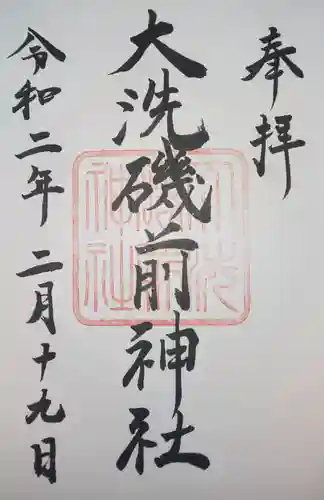 奉拝
大洗磯前神社
令和二年二月十九日